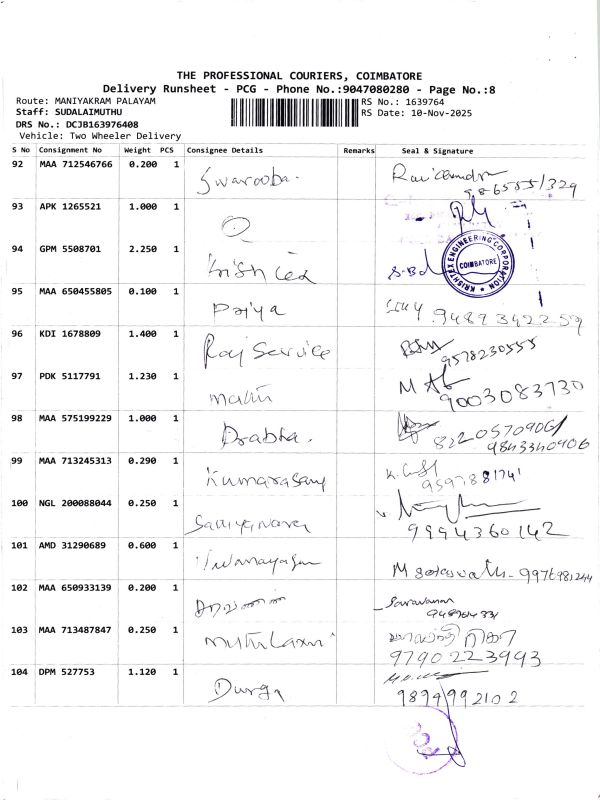 THE PROFESSIONAL COURIERS, COIMBATORE
Delivery Runsheet - PCG - Phone No.:9047080280 - Page No.:8
Route: MANIYAKRAM PALAYAM
RS No.: 1639764
Staff: SUDALAIMUTHU
RS Date: 10-Nov-2025
DRS No.: DCJB163976408
Vehicle: Two Wheeler Delivery
S No Consignment No Weight PCS Consignee Details Remarks Seal & Signature
92 MAA 712546766 0.200 1 Swarooba.
93 APK 1265521 1.000 1
94 GPM 5508701 2.250 1 S.Bd
KRISHTEK ENGINEERING CORPORATION
COIMBATORE
95 MAA 650455805 0.100 1 Priya 9489342259
96 KDI 1678809 1.400 1 Raj Service 9578230555
97 PDK 5117791 1.230 1 9003083730
98 MAA 575199229 1.000 1 Prabha. 8220570906
9843340906
99 MAA 713245313 0.290 1 Kumarasamy 9597881741
100 NGL 200088044 0.250 1 9994360142
101 AMD 31290689 0.600 1 9976981244
102 MAA 650933139 0.200 1 Saravanan
103 MAA 713487847 0.250 1 9790223993
104 DPM 527753 1.120 1 Durga 9894992102
PCG